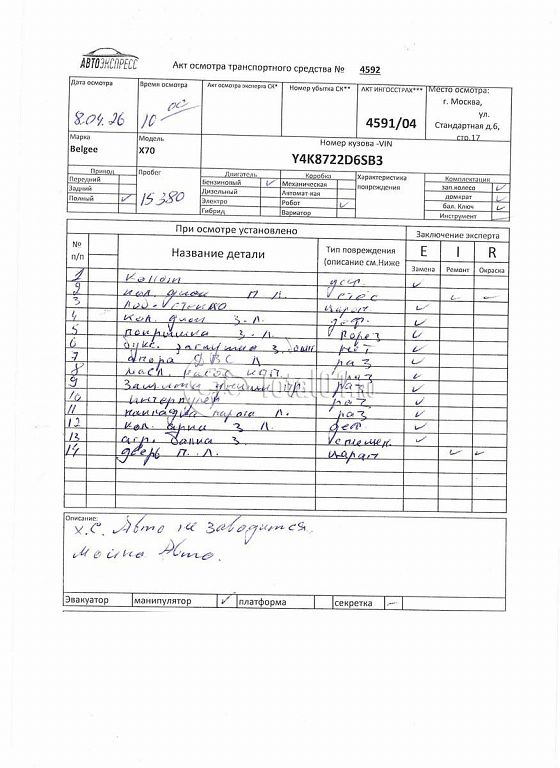 АВТОЭКСПРЕСС
Акт осмотра транспортного средства № 4592
Дата осмотра
8.04.26
Время осмотра
10 00
Акт осмотра эксперта СК*
Номер убытка СК**
АКТ ИНГОССТРАХ***
4591/04
Место осмотра:
г. Москва,
ул.
Стандартная д.6,
стр.17
Марка
Belgee
Модель
X70
Номер кузова -VIN
Y4K8722D6SB3
Привод
Передний
Задний
Полный ✓
Пробег
15380
Двигатель
Бензиновый ✓
Дизельный
Электро
Гибрид
Коробка
Механическая
Автомат-кая
Робот ✓
Вариатор
Характеристика
повреждения
Комплектация
зап.колесо ✓
домкрат ✓
бал. Ключ ✓
Инструмент —
При осмотре установлено
Заключение эксперта
№
п/п
Название детали
Тип повреждения
(описание см.Ниже
E I R
Замена Ремонт Окраска
1 Капот деф. ✓
2 кол. диск П Л. стёс ✓ ✓
3 царап ✓
4 кол. диск З. Л. деф. ✓
5 покрышка З. Л. порез ✓
6 букс. заглушка З. нет ✓
7 опора ДВС Л раз ✓
8 масл. насос КПП раз ✓
9 Защита раз ✓
10 интеркулер раз ✓
11 накладка порога Л. раз ✓
12 кол. арка З Л. деф ✓
13 агр. балка З. ✓
14 дверь П. Л. царап ✓ ✓
Описание:
х.С. Авто не заводится.
мойка Авто.
Эвакуатор манипулятор ✓ платформа секретка —